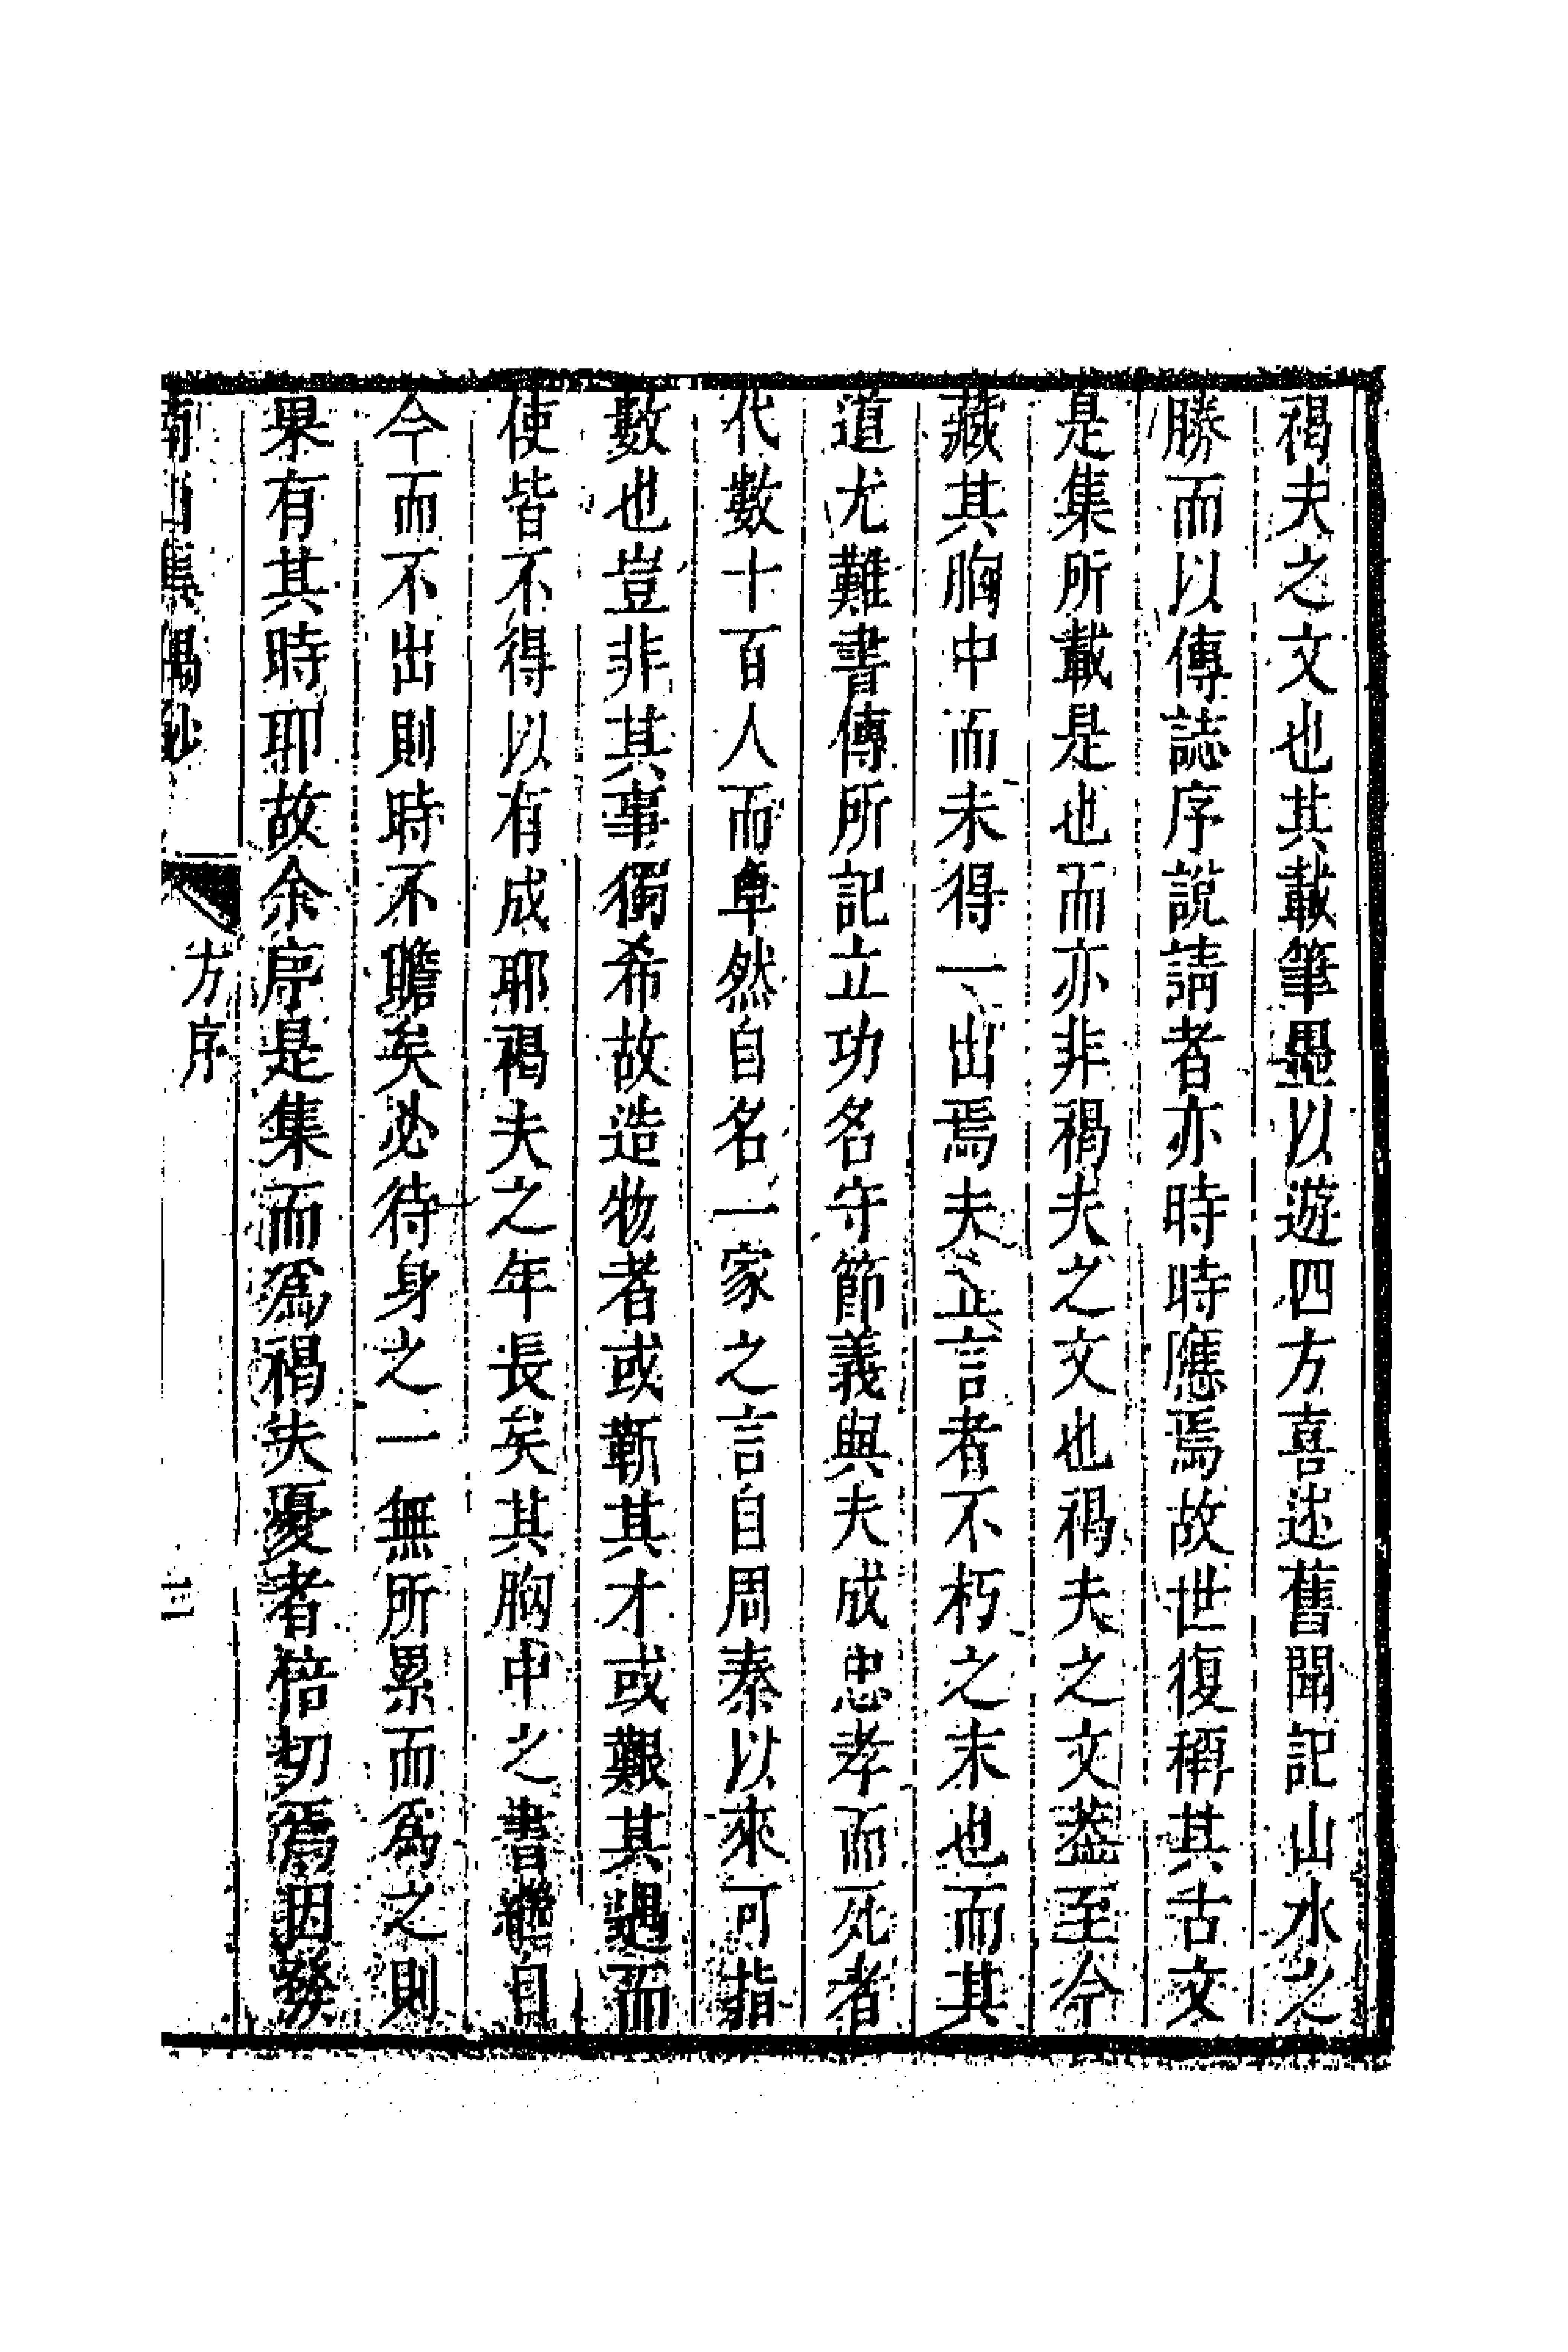 褐夫之文也其載筆墨以遊四方喜述舊聞記山水之
勝而以傳誌序說請者亦時時應焉故世復稱其古文
是集所載是也而亦非褐夫之文也褐夫之文葢至今
藏其胸中而未得一出焉夫立言者不朽之末也而其
道尤難書傳所記立功名守節義與夫成忠孝而死者
代數十百人而卓然自名一家之言自周秦以來可指
數也豈非其事獨希故造物者或靳其才或艱其遇而
使皆不得以有成耶褐夫之年長矣其胸中之書繼自
今而不出則時不贍矣必待身之一無所累而爲之則
果有其時耶故余序是集而爲褐夫憂者倍切焉因發
南山集偶鈔
方序
三